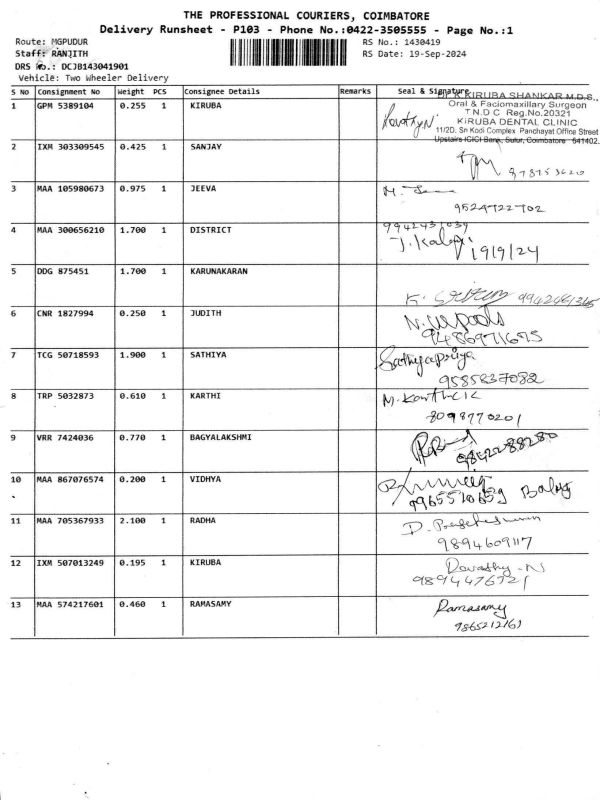 THE PROFESSIONAL COURIERS, COIMBATORE
Delivery Runsheet - P103 - Phone No.:0422-3505555 - Page No.:1
Route: MGPUDUR RS No.: 1430419
Staff: RANJITH RS Date: 19-Sep-2024
DRS No.: DCJB143041901
Vehicle: Two Wheeler Delivery
S No Consignment No Weight PCS Consignee Details Remarks Seal & Signature
KIRUBA SHANKAR M.D.S.,
Oral & Faciomaxillary Surgeon
T.N.D.C Reg.No.20321
KIRUBA DENTAL CLINIC
11/2D, Sn Kodi Complex Panchayat Office Street
Upstairs ICICI Bank, Sulur, Coimbatore 641402.
1 GPM 5389104 0.255 1 KIRUBA
2 IXM 303309545 0.425 1 SANJAY
3 MAA 105980673 0.975 1 JEEVA
9524722702
4 MAA 300656210 1.700 1 DISTRICT
9942431039
19/9/24
5 DDG 875451 1.700 1 KARUNAKARAN
6 CNR 1827994 0.250 1 JUDITH
9486971695
7 TCG 50718593 1.900 1 SATHIYA
Sathiyapriya
9585837082
8 TRP 5032873 0.610 1 KARTHI
M. Karthick
8098770201
9 VRR 7424036 0.770 1 BAGYALAKSHMI
9842288280
10 MAA 867076574 0.200 1 VIDHYA
11 MAA 705367933 2.100 1 RADHA
9894609117
12 IXM 507013249 0.195 1 KIRUBA
9894476721
13 MAA 574217601 0.460 1 RAMASAMY
Ramasamy
9865212161